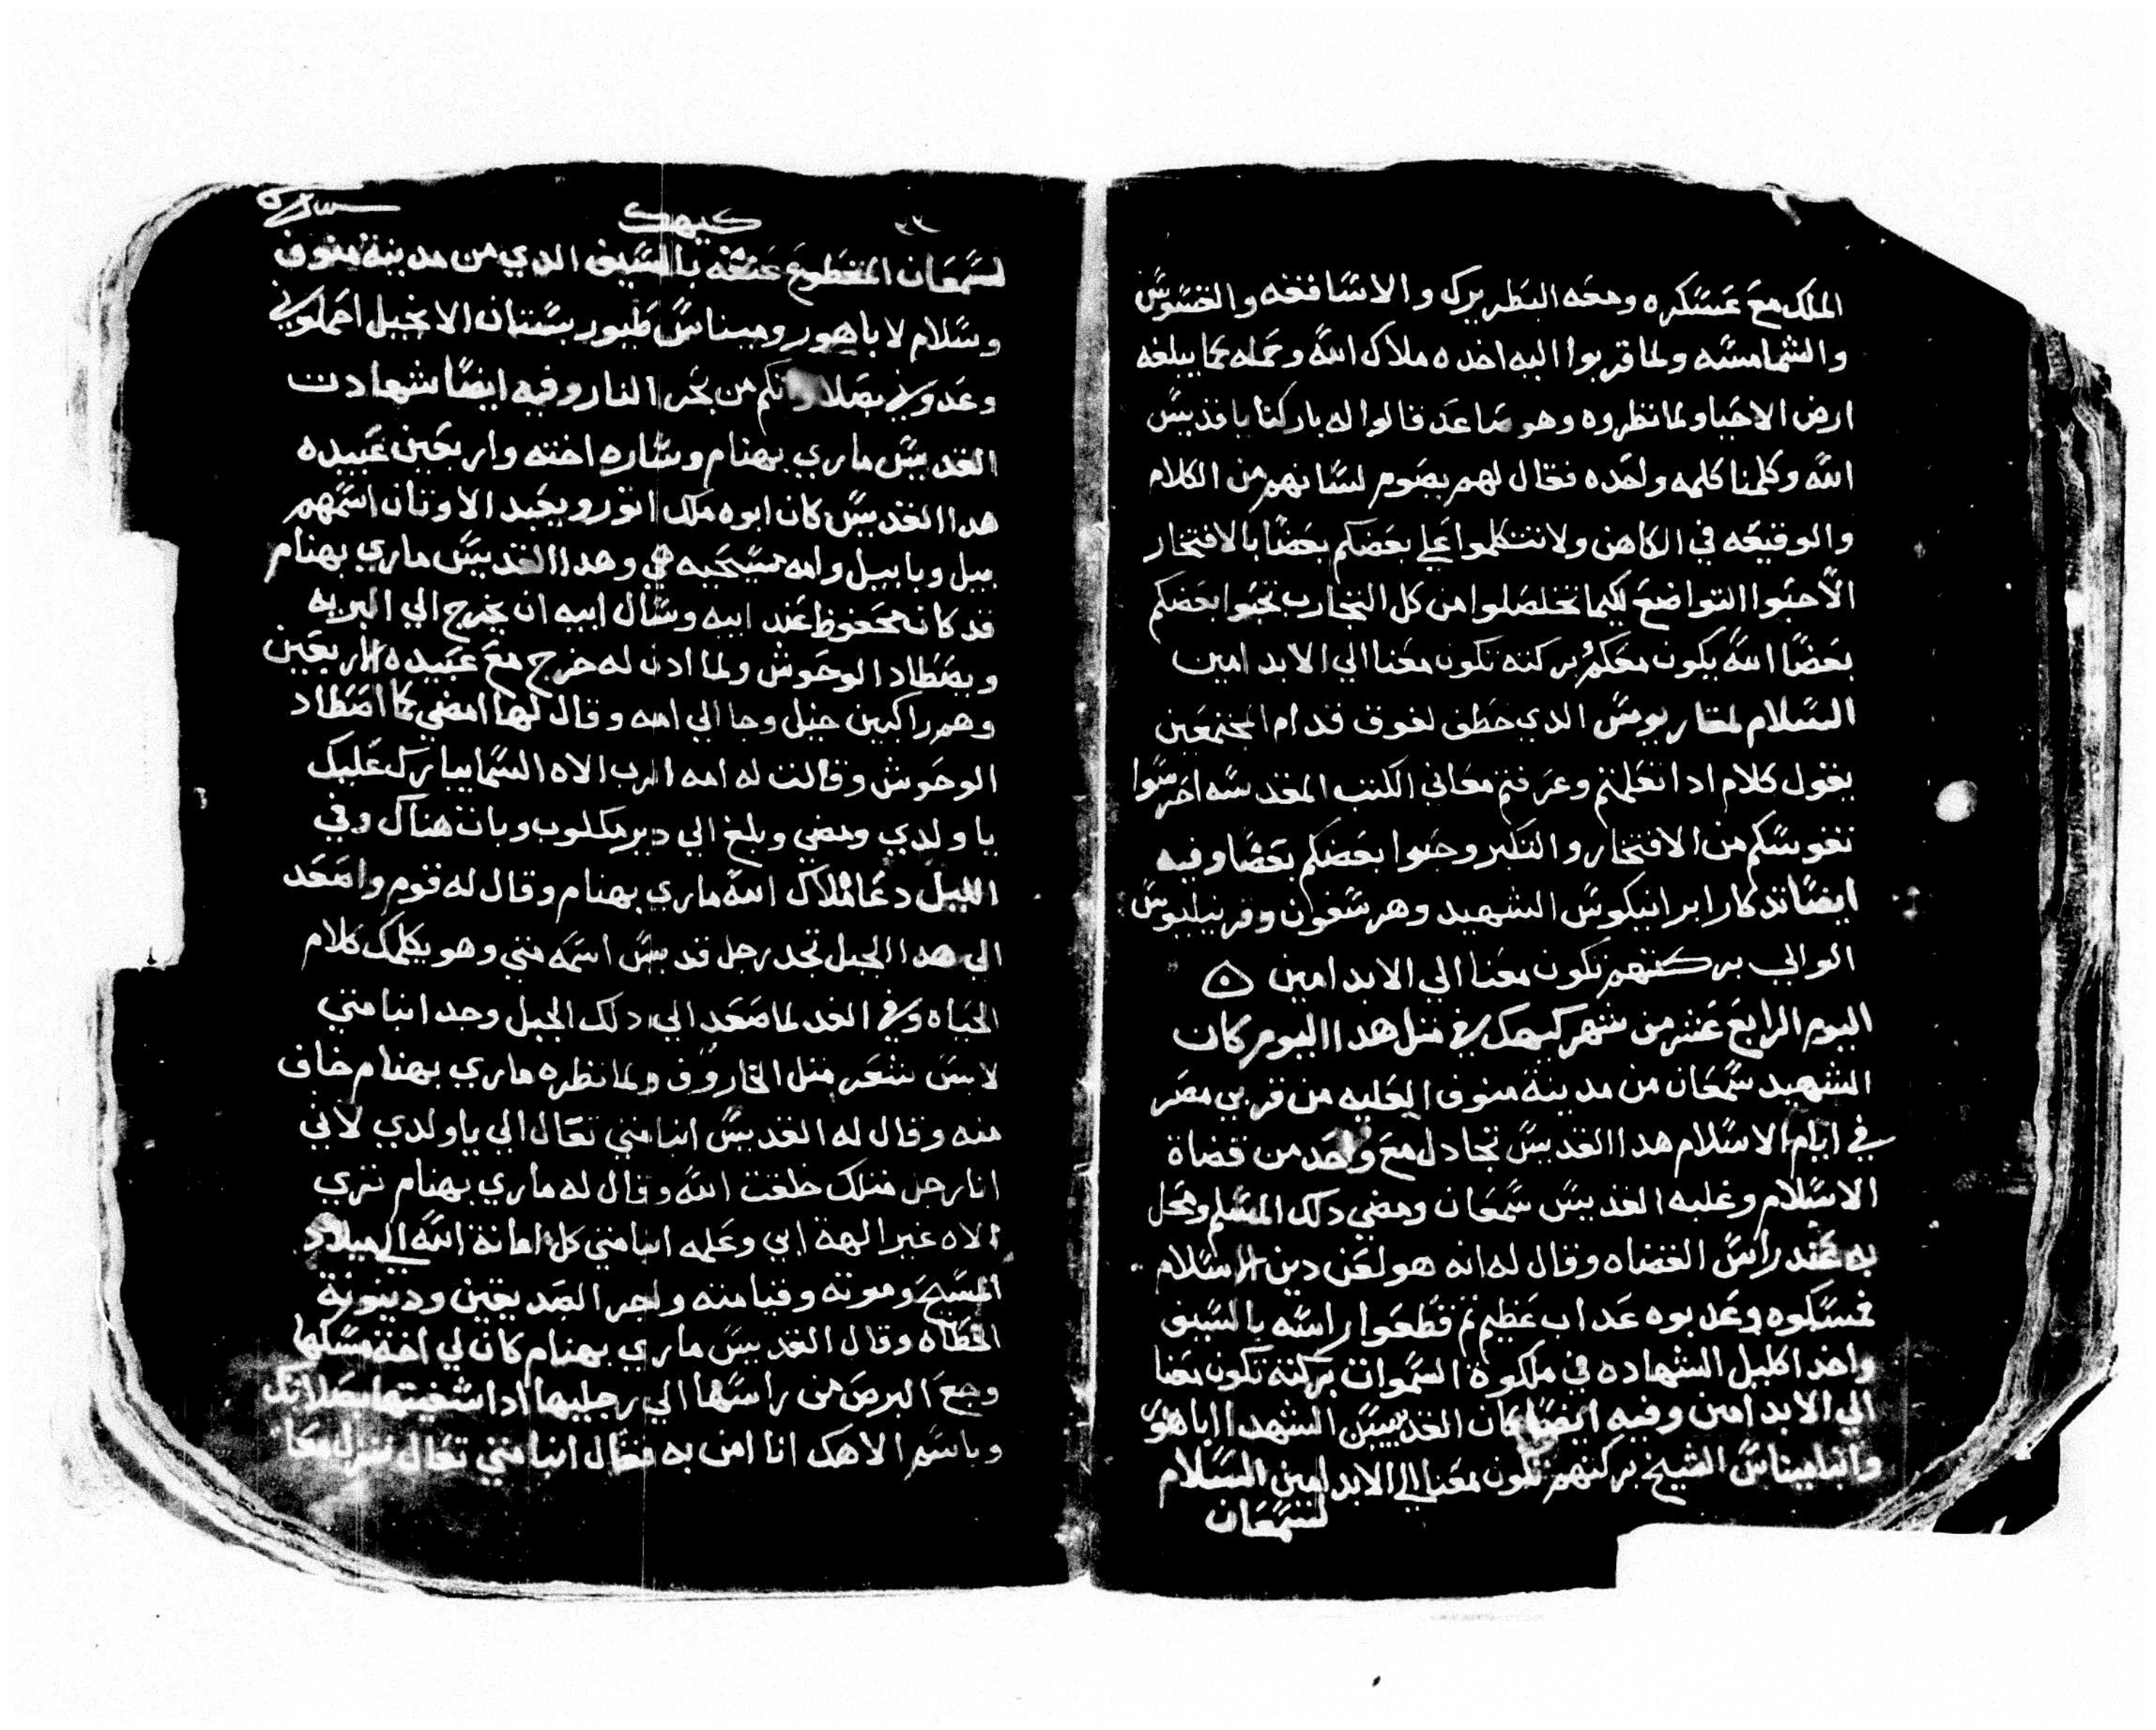 الملك مع عسكره ومعه البطريرك والاساقفه والقسوس
والشمامسه ولما قربوا اليه اخده ملاك الله وحمله كما يبلغه
ارض الاحيا ولما نظروه وهو صاعد قالوا له باركنا يا قديس
الله وكلمنا كلمه واحده فقال لهم بصوم لسانهم من الكلام
والوقيعه في الكاهن ولا تتكلموا علي بعضكم بعضا بالافتخار
الا حبوا التواضع لكيما تخلصلوا من كل التجارب تحبوا بعضكم
بعضا الله يكون معكم بركته تكون معنا الي الابد امين
السلام لمقاريوس الدي خطف لفوق قدام المجتمعين
يقول كلام ادا تعلمتم وعرفتم معاني الكتب المقدسه احرسوا
نفوسكم من الافتخار والتكبر وحبوا بعضكم بعضا وفيه
ايضا تدكار ابرانيكوس الشهيد وهرشفون وقرنيليوس
الوالي بركتهم تكون معنا الي الابد امين
اليوم الرابع عشر من شهر كيهك في متل هدا اليوم كان
الشهيد سمعان من مدينة منوف العليه من قري مصر
في ايام الاسلام هدا القديس تجادل مع واحد من قضاة
الاسلام وغلبه القديس سمعان ومضي دلك المسلم ومحل
به عند راس القضاه وقال له انه هو لعن دين الاسلام
فمسكوه وعدبوه عداب عظيم تم قطعوا راسه بالسيف
واخد اكليل الشهاده في ملكوة السموات بركته تكون معنا
الي الابد امين وفيه ايضا كان القديسين الشهدا اباهور
وانبا ميناس الشيخ بركتهم تكون معنا الي الابد امين السلام
لسمعان
كيهك
لسمعان المقطوع عنقه بالسيف الدي من مدينة منوف
وسلام لاباهور وميناس طيور بستان الانجيل احملوني
وعدوني بصلاواتكم من بحر النار وفيه ايضا شهادت
القديس ماري بهنام وساره اخته واربعين عبيده
هدا القديس كان ابوه ملك اتور ويعبد الاوتان اسمهم
بيل وبابيل وامه مسيحيه هي وهدا القديس ماري بهنام
قد كان محفوظ عند ابيه وسال ابيه ان يخرج الي البريه
ويصطاد الوحوش ولما ادن له خرج مع عبيده الاربعين
وهم راكبين خيل وجا الي امه وقال لها امضي كما اصطاد
الوحوش وقالت له امه الرب الاه السما يبارك عليك
يا ولدي ومضي وبلغ الي دير مكلوب وبات هناك وفي
الليل دعا ملاك الله ماري بهنام وقال له قوم واصعد
الي هدا الجبل تجد رجل قديس اسمه متي وهو يكلمك كلام
الحياه وفي الغد لما صعد الي دلك الجبل وجد انبا متي
لابس شعر متل الخاروف ولما نظره ماري بهنام خاف
منه وقال له القديس انبا متي تعال الي يا ولدي لاني
انا رجل متلك خلقت الله وقال له ماري بهنام تري
الاه غير الهة ابي وعلمه انبا متي كل امانة الله الي ميلاد
المسيح وموته وقيامته واجر الصديقين ودينونة
الخطاه وقال القديس ماري بهنام كان لي اخة مسكها
وجع البرص من راسها الي رجليها ادا شفيتها بصلاتك
وباسم الاهك انا امن به فقال انبا متي تعال ننزل معا